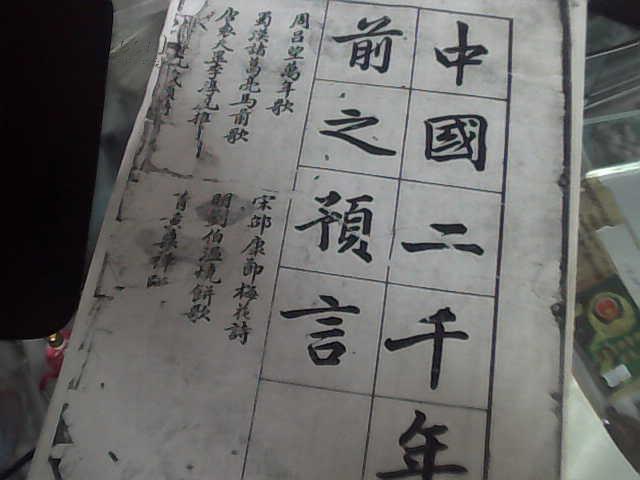 中國二千年
前之預言
周呂望萬年歌
蜀漢諸葛亮馬前歌
唐袁天罡李淳風推
宋邵康節梅花詩
明劉伯溫燒餅歌
禪師